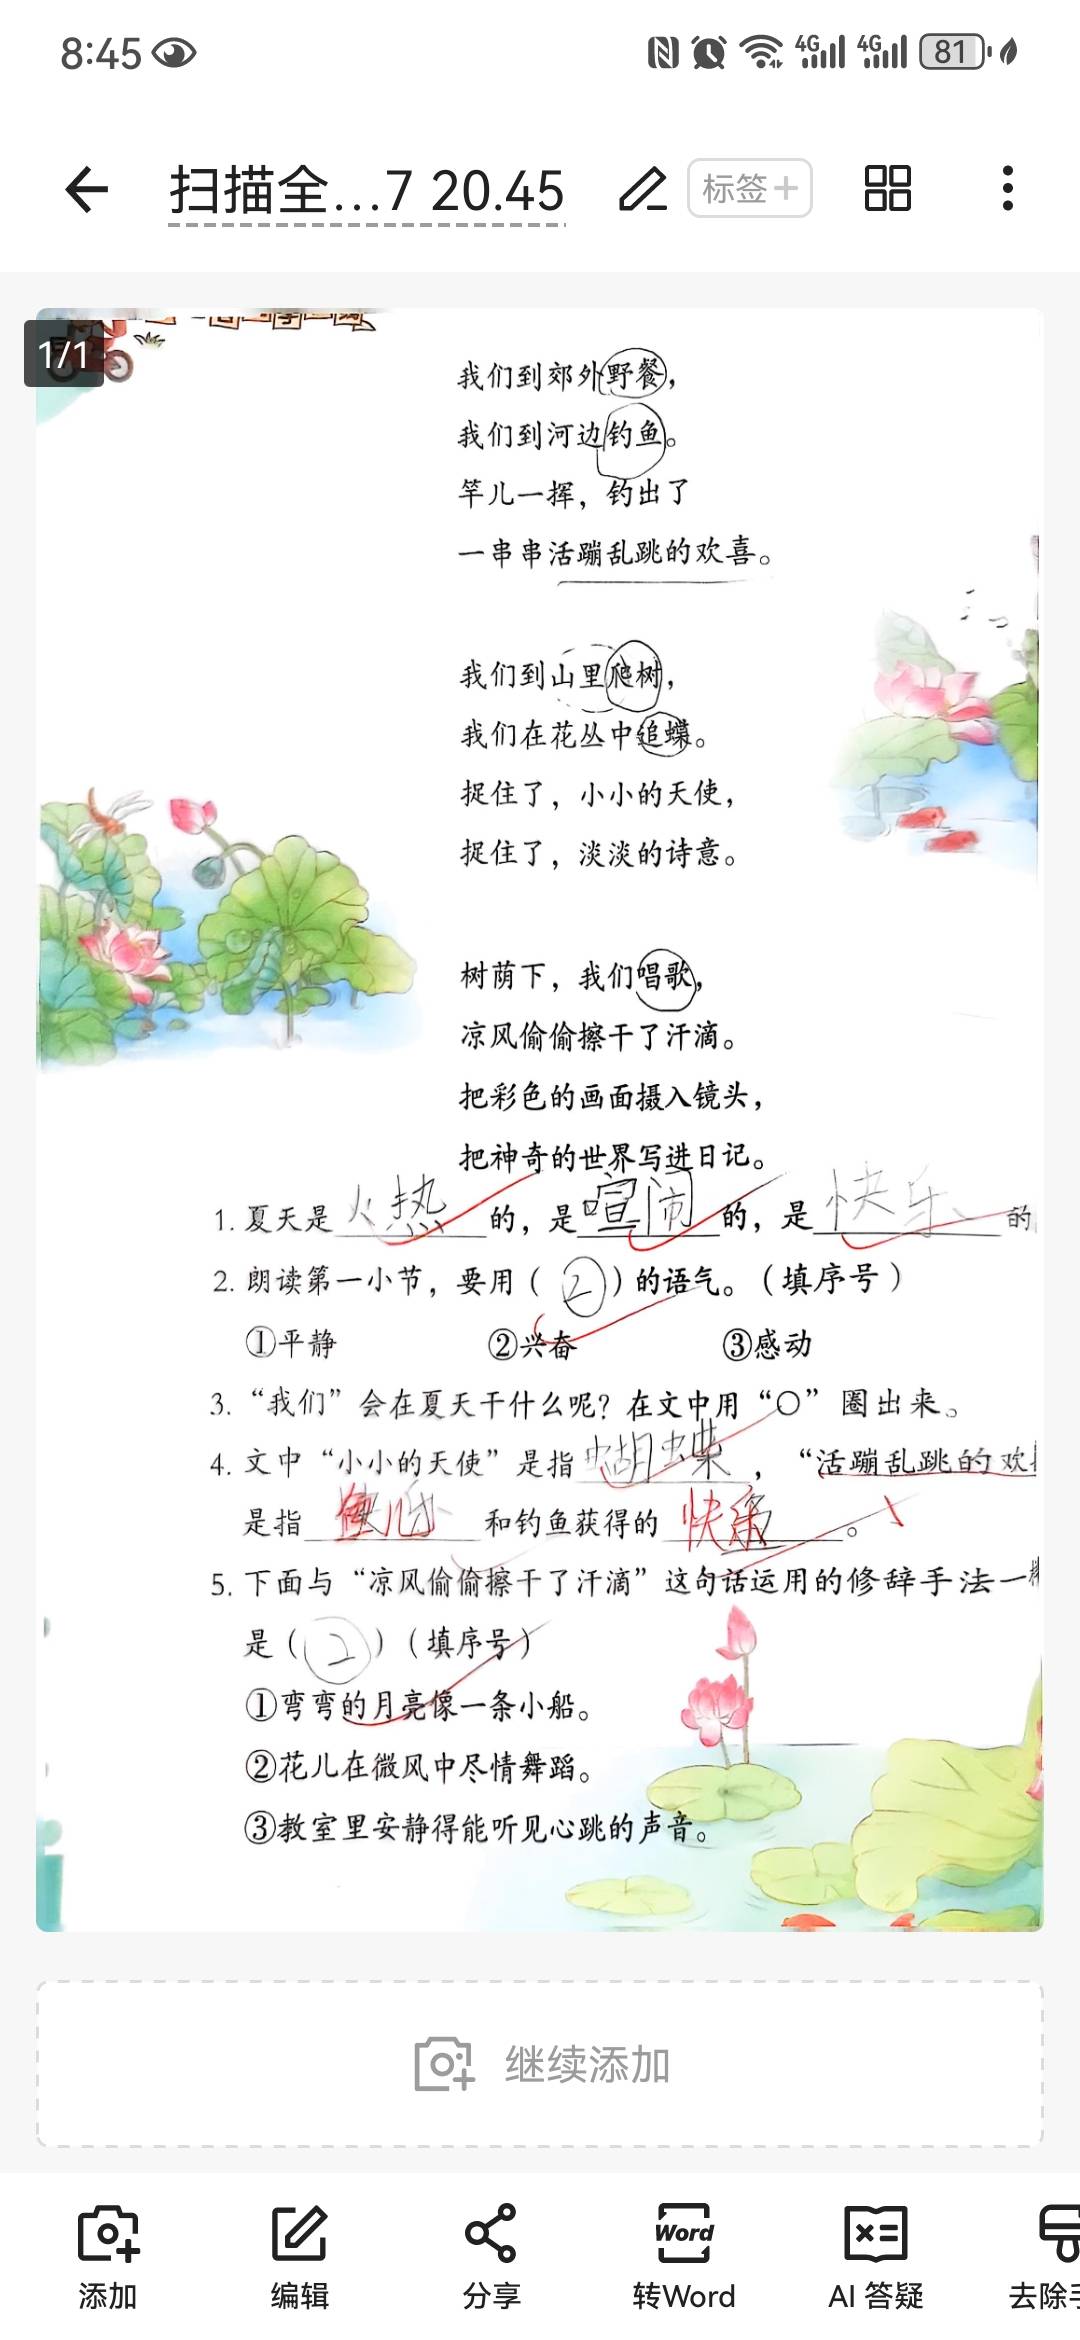 8:45
4G 4G 81
扫描全...7 20.45
标签+
1/1
我们到郊外野餐，
我们到河边钓鱼。
竿儿一挥，钓出了
一串串活蹦乱跳的欢喜。
我们到山里爬树，
我们在花丛中追蝶。
捉住了，小小的天使，
捉住了，淡淡的诗意。
树荫下，我们唱歌，
凉风偷偷擦干了汗滴。
把彩色的画面摄入镜头，
把神奇的世界写进日记。
1. 夏天是火热的，是喧闹的，是快乐的
2. 朗读第一小节，要用（②）的语气。（填序号）
①平静 ②兴奋 ③感动
3. “我们”会在夏天干什么呢？在文中用“○”圈出来。
4. 文中“小小的天使”是指蝴蝶，“活蹦乱跳的欢
是指鱼儿和钓鱼获得的快乐。
5. 下面与“凉风偷偷擦干了汗滴”这句话运用的修辞手法一
是（②）（填序号）
①弯弯的月亮像一条小船。
②花儿在微风中尽情舞蹈。
③教室里安静得能听见心跳的声音。
继续添加
添加 编辑 分享 转Word AI 答疑 去除
Word